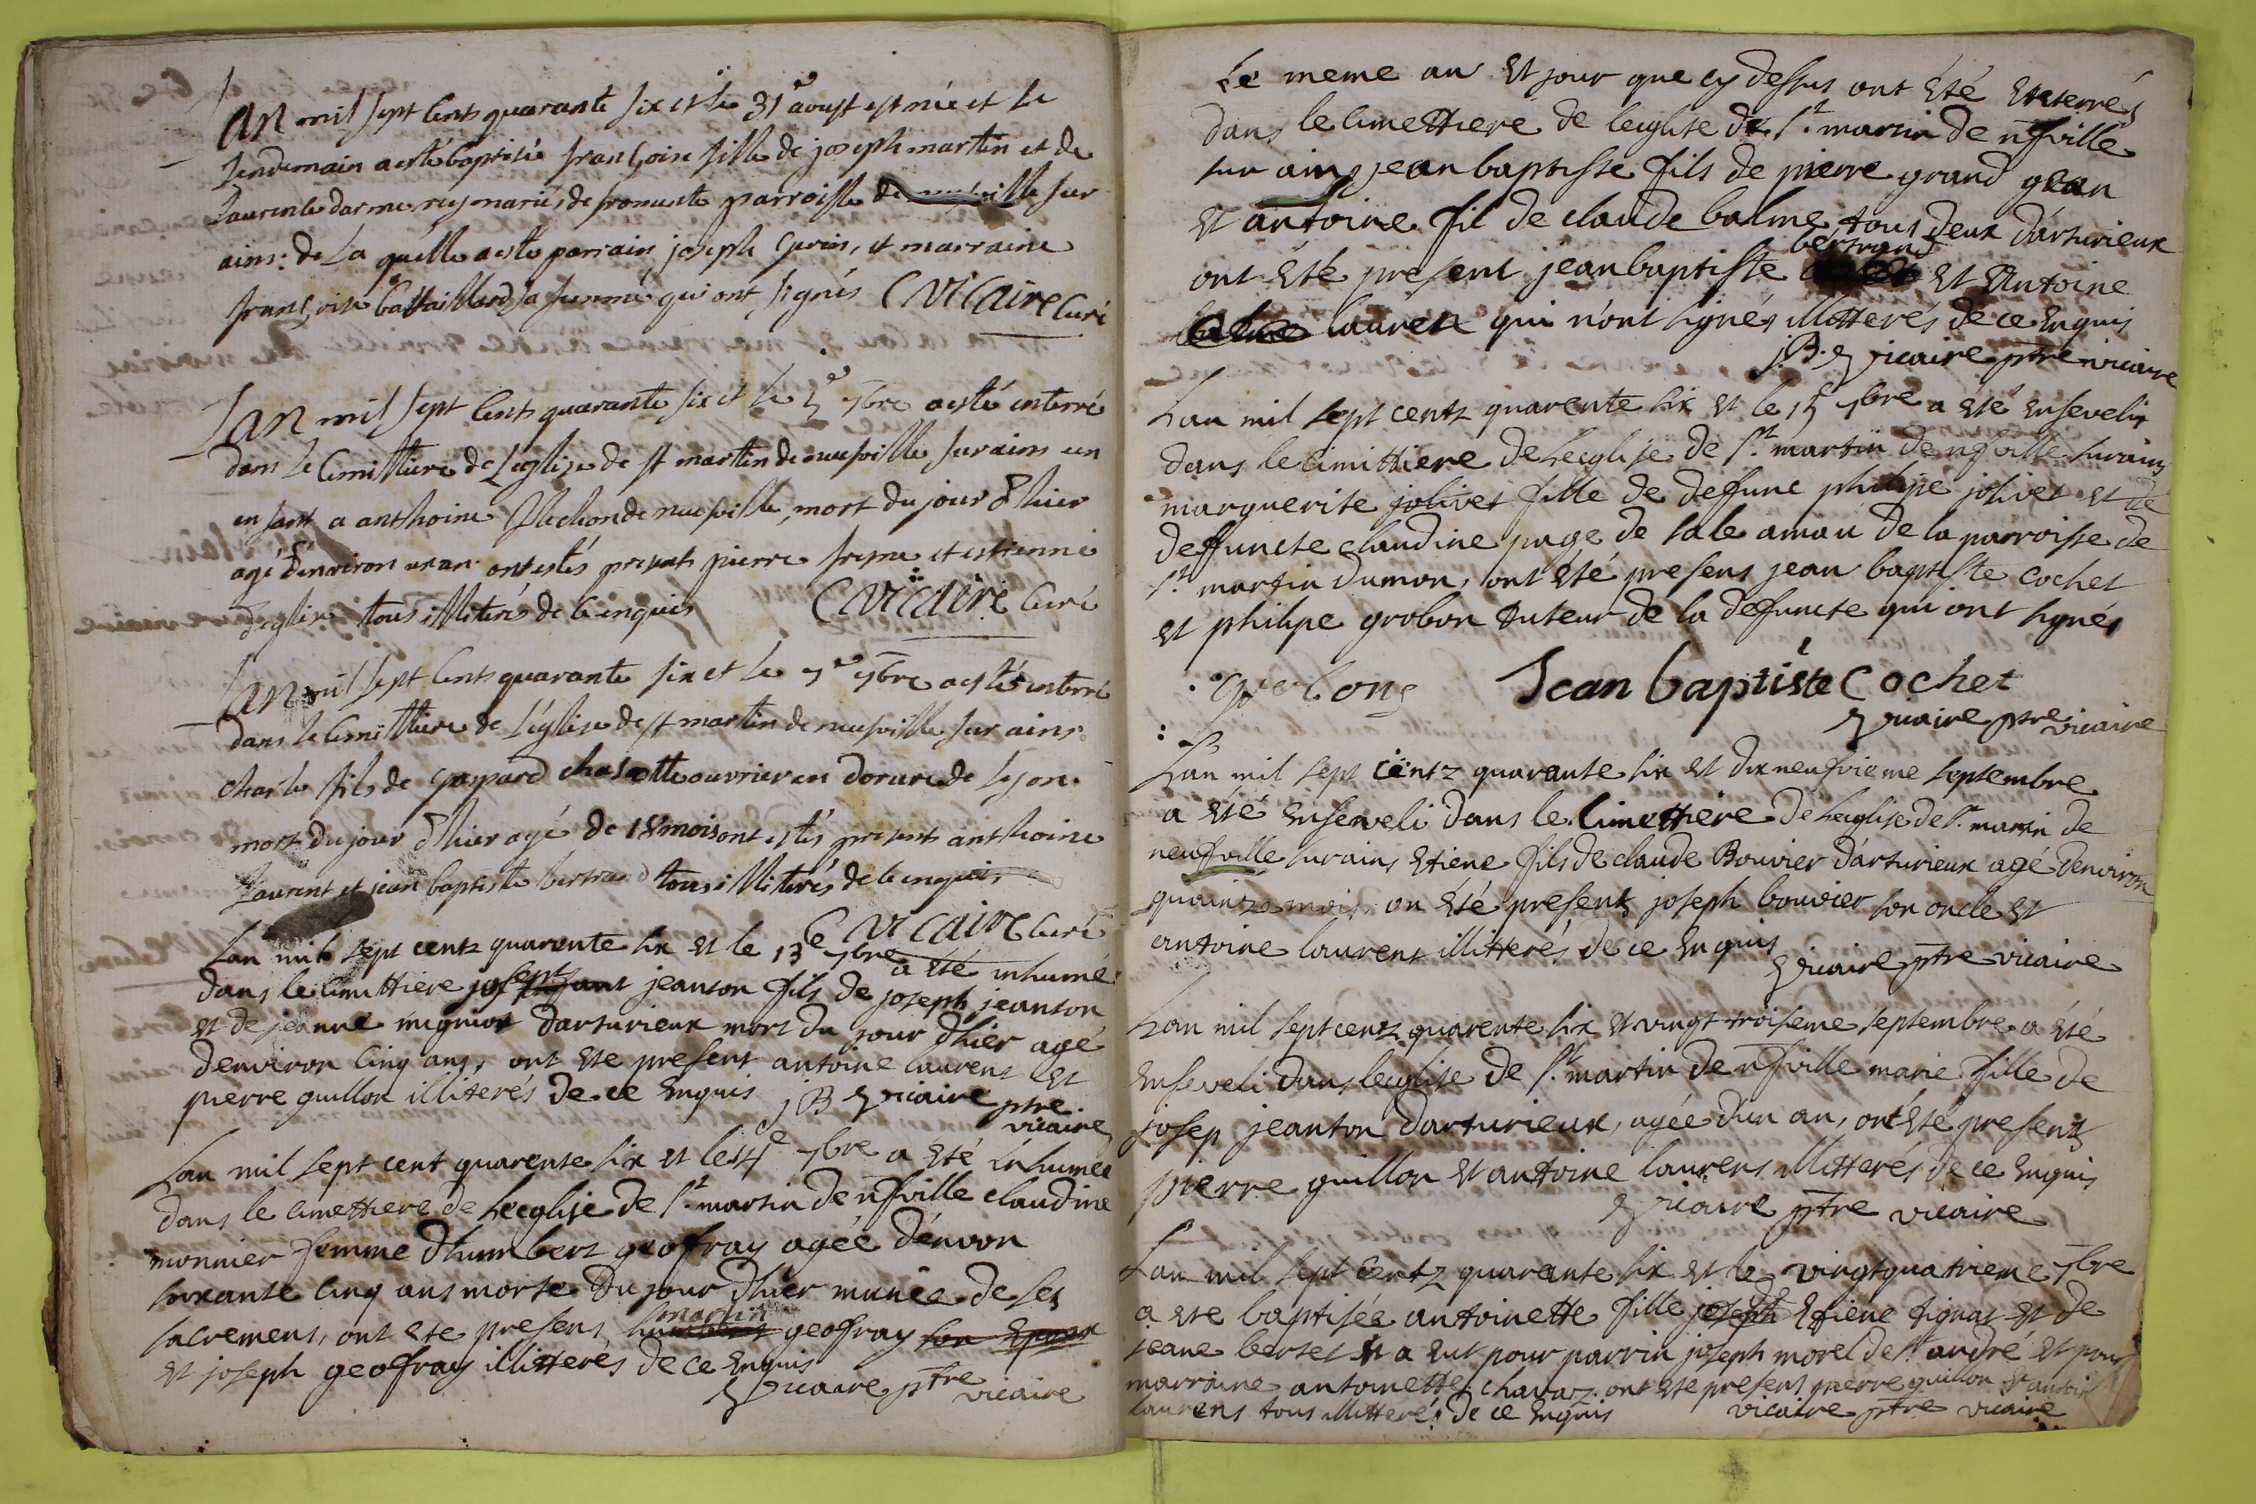 Lan mil sept cents quarante six et le 31e aoust est née et le
lendemain a esté baptisée françoise fille de joseph martin et de
Laurente mariés de fromente parroisse de neufville sur
ains: de La quelle a esté parrain joseph et marraine
françoise bataillard sa femme qui ont signés C Vicaire Curé
Lan mil sept cents quarante six et le 7bre a esté enterré
dans le Cimittiere de L'eglise de st martin de neufville sur ains un
enfant a anthoine de neufville, mort du jour d'hier
agé d'environ un an ont estés presents pierre et estienne
tous illiterés de ce enquis C Vicaire Curé
Lan mil sept cents quarante six et le 7bre a esté enterré
dans le Cimittiere de L'église de st martin de neufville sur ains
charle fils de gaspard chasotte ouvrier en dorure de lyon
mort du jour d'hier agé de 18 mois ont estés presents anthoine
Laurent et jean baptiste bertrand tous illiterés de ce enquis
C Vicaire Curé
Lan mil sept centz quarente six et le 13e 7bre a été inhumé
dans le cimittiere joseph jeanton fils de joseph jeanton
et de jeanne migniot darturieux mort du jour d'hier agé
denviron cinq ans, ont ete present antoine laurent et
pierre guillon illiterés de ce enquis j B Vicaire ptre
vicaire
Lan mil sept cent quarente six et le 14e 7bre a été inhumée
dans le cimettiere de Leeglise de st. martin de nfville claudine
monnier femme d'humbert geofray agée d'envon
soixante cinq ans morte du jour d'hier munée de ses
sacremens, ont ete presens martin geofray son epoux
et joseph geofray illitterés de ce enquis
Vicaire ptre vicaire
Le meme an et jour que cy dessus ont été enterrés
dans le cimettiere de leeglise de st. martin de nfville
sur ains jean baptiste fils de pierre grand gean
et antoine fil de claude balme tous deux d'arturieux
ont été present jean baptiste bertrand et Antoine
balme lauren qui n'ont signés illitterés de ce enquis
j. B. Vicaire ptre vicaire
Lan mil sept centz quarente six et le 15 7bre a été ensevelit
dans le cimittiere de Leeglise de st. martin de nfville surains
marguerite jolivet fille de defunc philipe jolivet et de
deffuncte claudine page de sale amau de la parroisse de
st. martin dumon, ont été presens jean baptiste cochet
et philipe grobon tuteur de la defuncte qui ont signés
Jean baptiste Cochet
Vicaire ptre vicaire
Lan mil sept centz quarante six et dix neufvieme septembre
a été enseveli dans le Cimettiere de Leeglise de st. martin de
neufville surains etiene fils de claude Bouvier d'arturieux agé denviron
quainze mois on été presentz joseph bouvier son oncle et
antoine laurens illitterés de ce enquis
Vicaire ptre vicaire
Lan mil sept centz quarente six et vingt troiseme septembre a été
enseveli dans leeglise de st. martin de nfville marie fille de
josep jeanton darturieux, agée d'un an, ont été presentz
pierre guillon et antoine laurens illitterés de ce enquis
Vicaire ptre vicaire
Lan mil sept centz quarante six et le vingtquatrieme 7bre
a ete baptisée antoinette fille joseph etiene signat et de
jeane berset et a eut pour parrin joseph morel de st. andré et pour
marraine antoinette chavaz ont ete present pierre guillon et antoin
laurens tous illitterés de ce enquis vicaire ptre vicaire